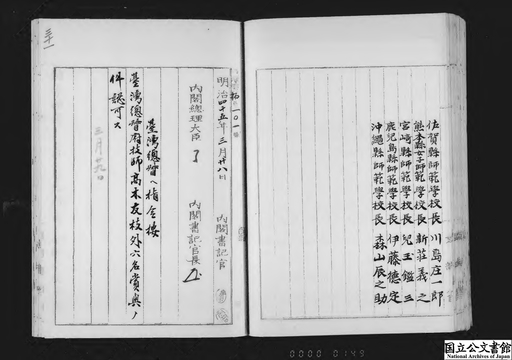 佐賀縣師範學校長 川島庄一郎
熊本縣女子師範學校長 新莊義之
宮崎縣師範學校長 兒玉鑑三
鹿兒島縣師範學校長 伊藤德定
沖繩縣師範學校長 森山辰之助
明治四十五年三月廿八日
内閣總理大臣
内閣書記官長
内閣書記官
臺灣總督ヘ指令按
臺灣總督府技師高木友枝外六名賞與ノ
件認可ス
三月廿九日
0000 0149
国立公文書館
National Archives of Japan